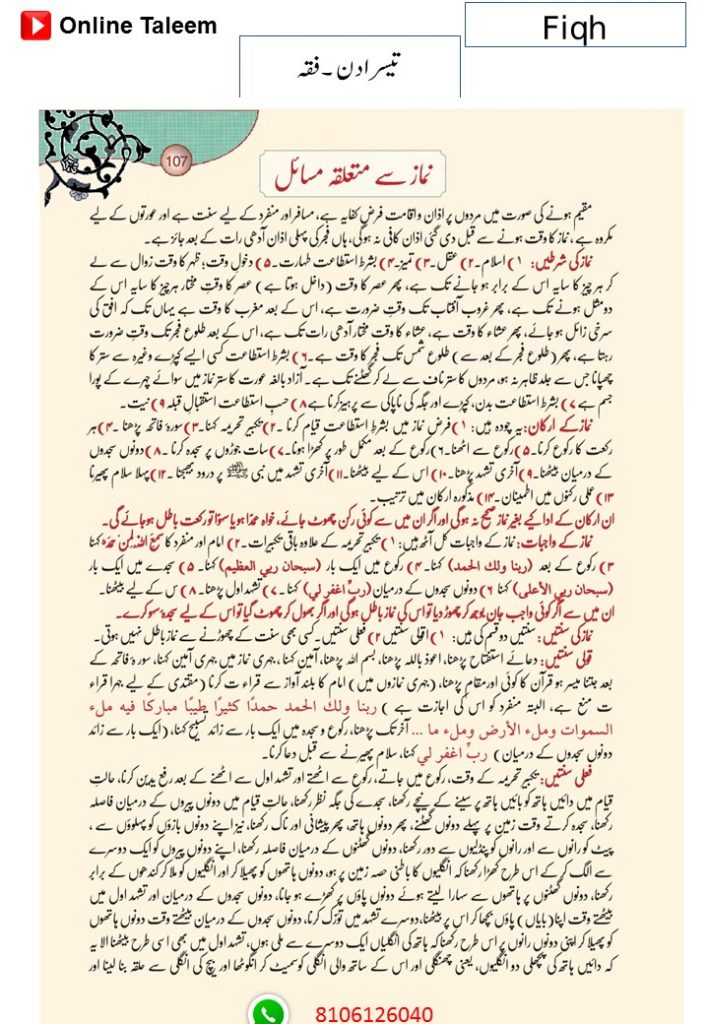 Online Taleem
Fiqh
تیسرا دن ۔ فقہ
107
نماز سے متعلقہ مسائل
مقیم ہونے کی صورت میں مردوں پر اذان و اقامت فرض کفایہ ہے، مسافر اور منفرد کے لیے سنت ہے اور عورتوں کے لیے
مکروہ ہے، نماز کا وقت ہونے سے قبل دی گئی اذان کافی نہ ہوگی، ہاں فجر کی پہلی اذان آدھی رات کے بعد جائز ہے۔
نماز کی شرطیں: ۱) اسلام۔ ۲) عقل۔ ۳) تمیز۔ ۴) بشرط استطاعت طہارت۔ ۵) دخولِ وقت؛ ظہر کا وقت زوال سے لے
کر ہر چیز کا سایہ اس کے برابر ہو جانے تک ہے، پھر عصر کا وقت (داخل ہوتا ہے) عصر کا وقتِ مختار ہر چیز کا سایہ اس کے
دو مثل ہونے تک ہے، پھر غروب آفتاب تک وقتِ ضرورت ہے، اس کے بعد مغرب کا وقت ہے یہاں تک کہ افق کی
سرخی زائل ہو جائے، پھر عشاء کا وقت ہے، عشاء کا وقت مختار آدھی رات تک ہے، اس کے بعد طلوع فجر تک وقتِ ضرورت
رہتا ہے، پھر (طلوع فجر کے بعد سے) طلوع شمس تک فجر کا وقت ہے۔ ۶) بشرط استطاعت کسی ایسے کپڑے وغیرہ سے ستر کا
چھپانا جس سے جلد ظاہر نہ ہو، مردوں کا ستر ناف سے لے کر گھٹنے تک ہے۔ آزاد بالغہ عورت کا ستر نماز میں سوائے چہرے کے پورا
جسم ہے ۷) بشرط استطاعت بدن، کپڑے اور جگہ کی ناپاکی سے پرہیز کرنا ہے ۸) حسبِ استطاعت استقبالِ قبلہ ۹) نیت۔
نماز کے ارکان: یہ چودہ ہیں: ۱) فرض نماز میں بشرط استطاعت قیام کرنا۔ ۲) تکبیر تحریمہ کہنا۔ ۳) سورۂ فاتحہ پڑھنا۔ ۴) ہر
رکعت کا رکوع کرنا۔ ۵) رکوع سے اٹھنا۔ ۶) رکوع کے بعد مکمل طور پر کھڑا ہونا۔ ۷) سات جوڑوں پر سجدہ کرنا۔ ۸) دونوں سجدوں
کے درمیان بیٹھنا۔ ۹) آخری تشہد پڑھنا۔ ۱۰) اس کے لیے بیٹھنا۔ ۱۱) آخری تشہد میں نبی ﷺ پر درود بھیجنا۔ ۱۲) پہلا سلام پھیرنا
۱۳) عملی رکنوں میں اطمینان۔ ۱۴) مذکورہ ارکان میں ترتیب۔
ان ارکان کے ادا کیے بغیر نماز صحیح نہ ہوگی اور اگر ان میں سے کوئی رکن چھوٹ جائے، خواہ عمدًا ہو یا سہوًا تو رکعت باطل ہو جائے گی۔
نماز کے واجبات: نماز کے واجبات کل آٹھ ہیں: ۱) تکبیر تحریمہ کے علاوہ باقی تکبیرات۔ ۲) امام اور منفرد کا سَمِعَ اللّٰهُ لِمَنْ حَمِدَه کہنا
۳) رکوع کے بعد (ربنا ولك الحمد) کہنا۔ ۴) رکوع میں ایک بار (سبحان ربي العظيم) کہنا۔ ۵) سجدے میں ایک بار
(سبحان ربي الأعلى) کہنا ۶) دونوں سجدوں کے درمیان (ربِّ اغفر لي) کہنا۔ ۷) تشہد اول پڑھنا۔ ۸) اس کے لیے بیٹھنا۔
ان میں سے اگر کوئی واجب جان بوجھ کر چھوڑ دیا تو اس کی نماز باطل ہوگی اور اگر بھول کر چھوٹ گیا تو اس کے لیے سجدہ سہو کرے۔
نماز کی سنتیں: سنتیں دو قسم کی ہیں: ۱) قولی سنتیں ۲) فعلی سنتیں۔ کسی بھی سنت کے چھوڑنے سے نماز باطل نہیں ہوتی۔
قولی سنتیں: دعائے استفتاح پڑھنا، اعوذ باللہ پڑھنا، بسم اللہ پڑھنا، آمین کہنا، جہری نماز میں جہری آمین کہنا، سورۂ فاتحہ کے
بعد جتنا میسر ہو قرآن کا کوئی اور مقام پڑھنا، (جہری نمازوں میں) امام کا بلند آواز سے قراء ت کرنا (مقتدی کے لیے جہرا قراء
ت منع ہے، البتہ منفرد کو اس کی اجازت ہے) ربنا ولك الحمد حمدًا كثيرًا طيبًا مباركًا فيه ملء
السموات وملء الأرض وملء ما ... آخر تک پڑھنا، رکوع و سجدہ میں ایک بار سے زائد تسبیح کہنا، (ایک بار سے زائد
دونوں سجدوں کے درمیان) ربِّ اغفر لي کہنا، سلام پھیرنے سے قبل دعا کرنا۔
فعلی سنتیں: تکبیر تحریمہ کے وقت، رکوع میں جاتے، رکوع سے اٹھتے اور تشہد اول سے اٹھنے کے بعد رفع یدین کرنا، حالتِ
قیام میں دائیں ہاتھ کو بائیں ہاتھ پر سینے کے نیچے رکھنا، سجدے کی جگہ نظر رکھنا، حالتِ قیام میں دونوں پیروں کے درمیان فاصلہ
رکھنا، سجدہ کرتے وقت زمین پر پہلے دونوں گھٹنے، پھر دونوں ہاتھ، پھر پیشانی اور ناک رکھنا، نیز اپنے دونوں بازؤں کو پہلوؤں سے ،
پیٹ کو رانوں سے اور رانوں کو پنڈلیوں سے دور رکھنا، دونوں گھٹنوں کے درمیان فاصلہ رکھنا، اپنے دونوں پیروں کو ایک دوسرے
سے الگ کر کے اس طرح کھڑا رکھنا کہ انگلیوں کا باطنی حصہ زمین پر ہو، دونوں ہاتھوں کو پھیلا کر اور انگلیوں کو ملا کر کندھوں کے برابر
رکھنا، دونوں گھٹنوں پر ہاتھوں سے سہارا لیتے ہوئے دونوں پاؤں پر کھڑے ہو جانا، دونوں سجدوں کے درمیان اور تشہد اول میں
بیٹھتے وقت اپنا (بایاں) پاؤں بچھا کر اس پر بیٹھنا، دوسرے تشہد میں تورّک کرنا، دونوں سجدوں کے درمیان بیٹھتے وقت دونوں ہاتھوں
کو پھیلا کر اپنی دونوں رانوں پر اس طرح رکھنا کہ ہاتھ کی انگلیاں ایک دوسرے سے ملی ہوں، تشہد اول میں بھی اسی طرح بیٹھنا الا یہ
کہ دائیں ہاتھ کی پچھلی دو انگلیوں، یعنی چھنگلی اور اس کے ساتھ والی انگلی کو سمیٹ کر انگوٹھا اور بیچ کی انگلی سے حلقہ بنا لینا اور
8106126040